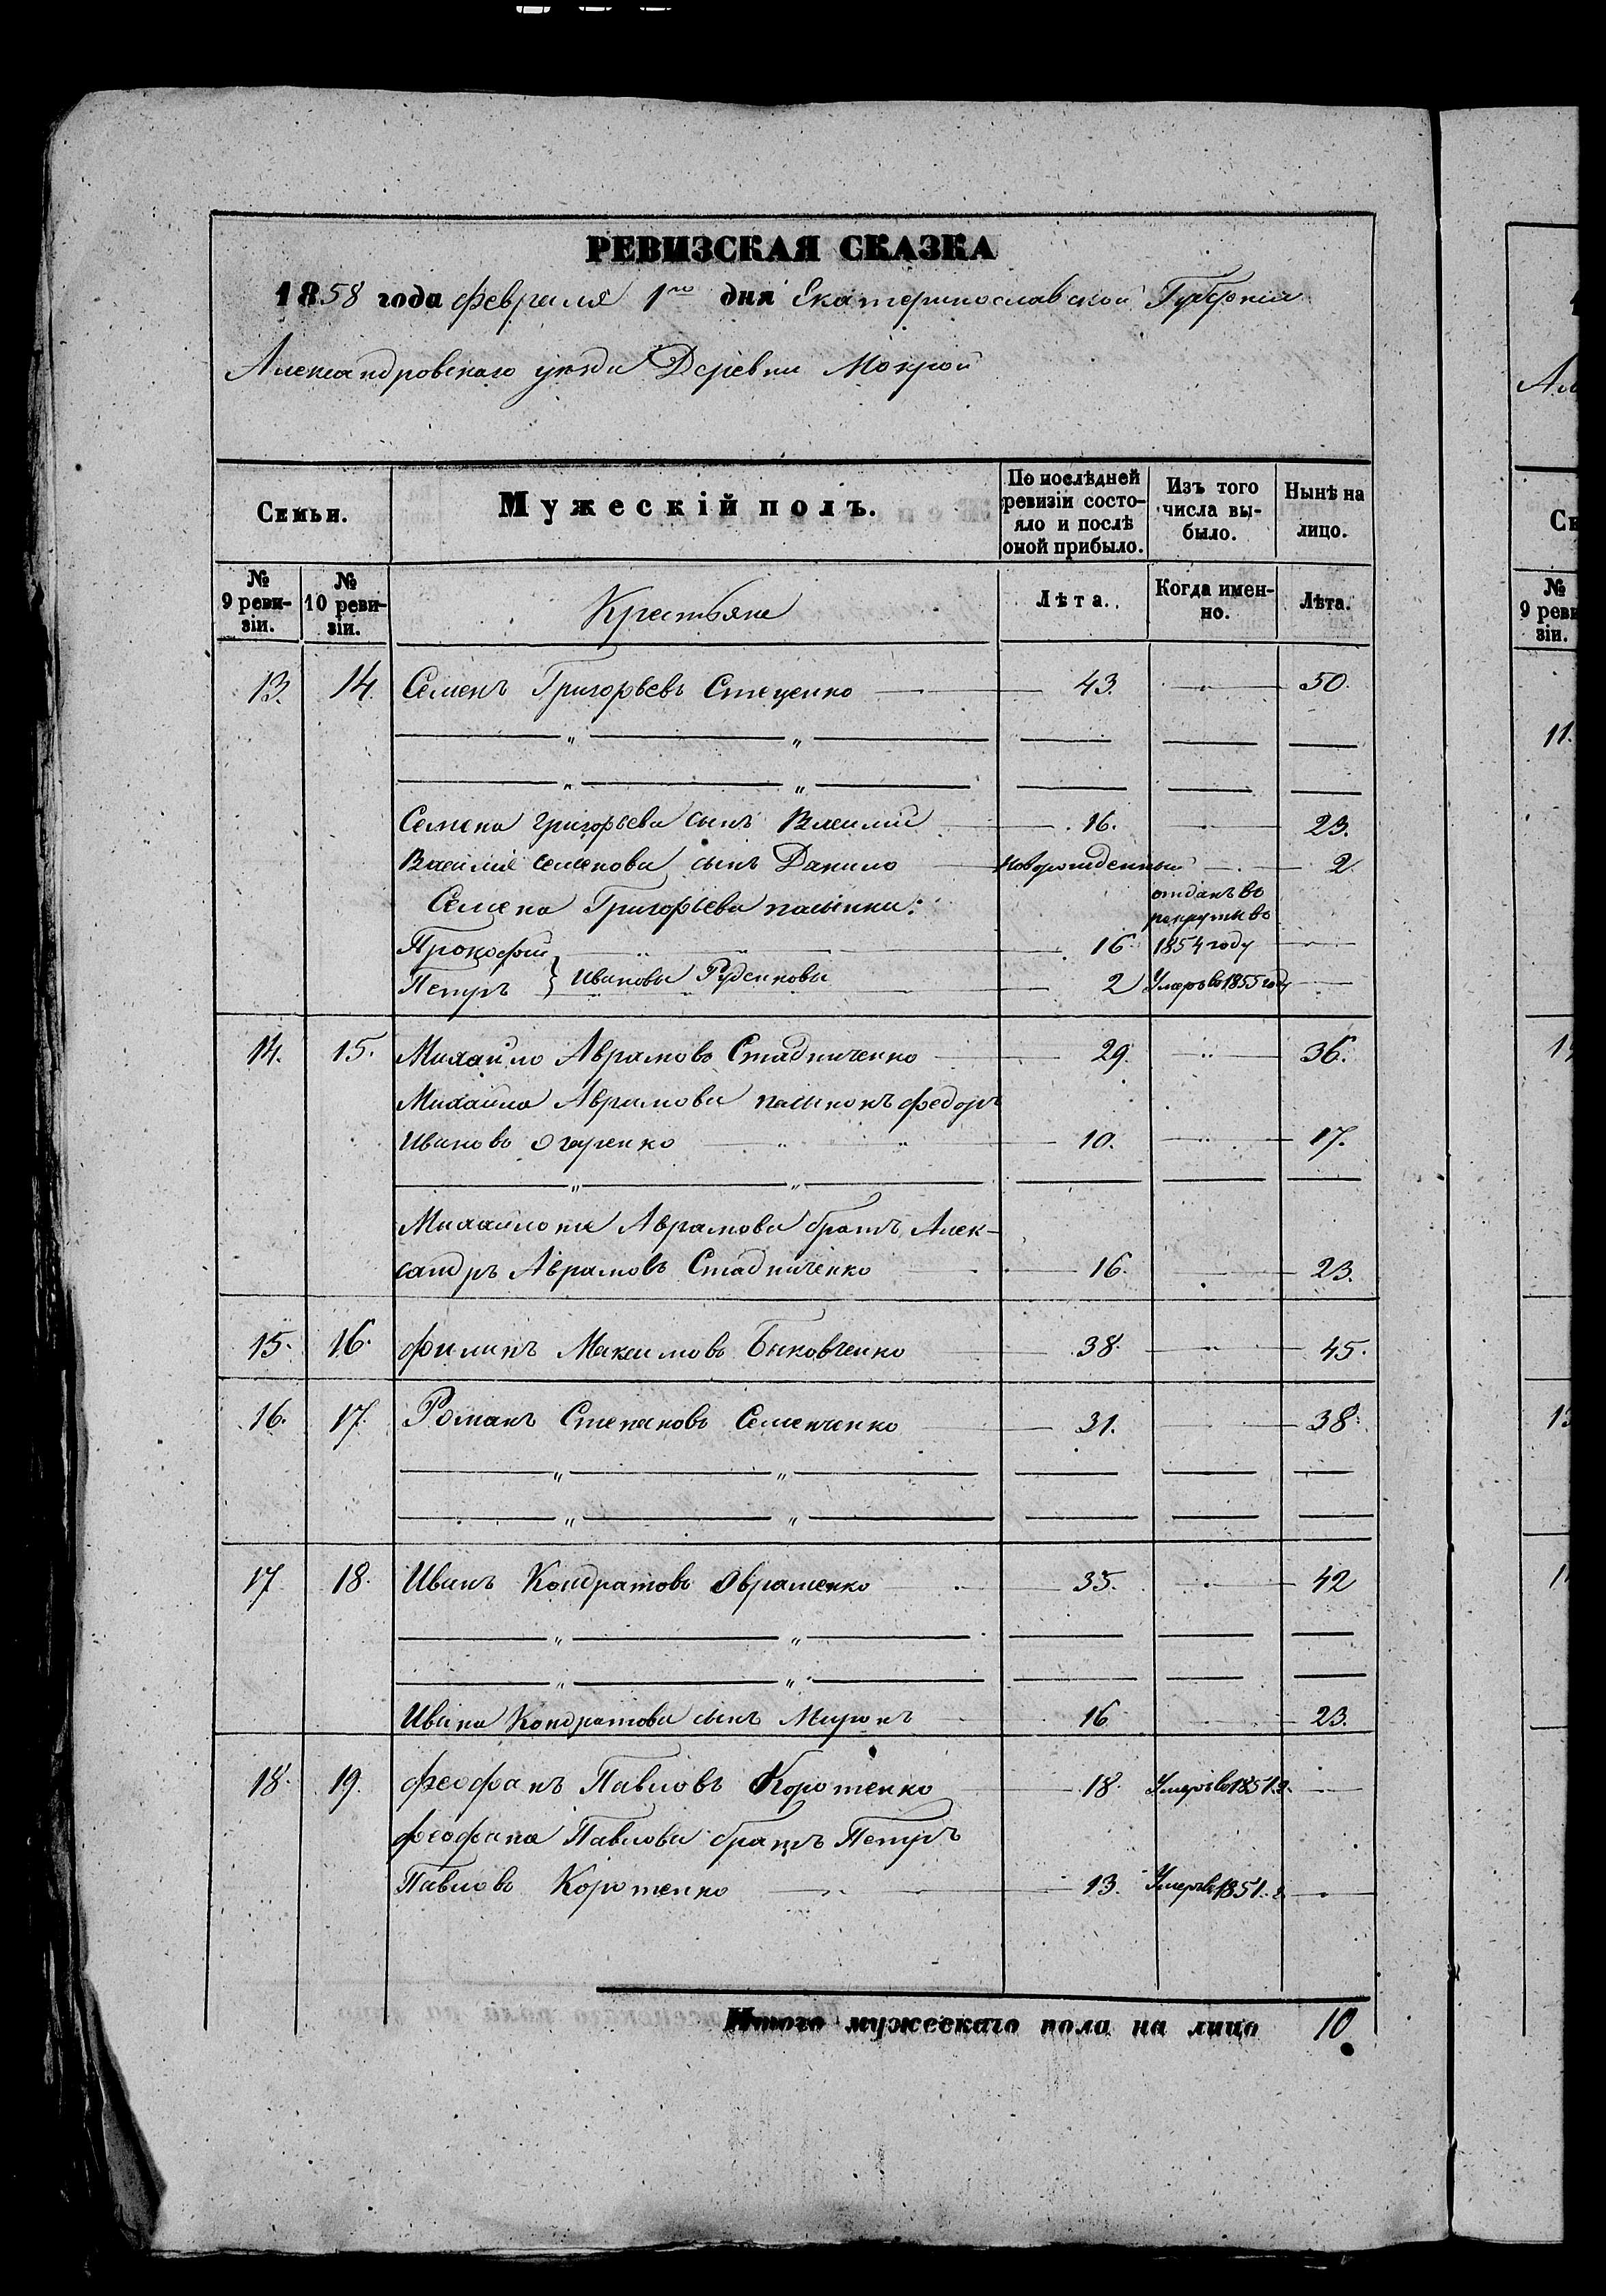 РЕВИЗСКАЯ СКАЗКА
1858 года февраля 1го дня Екатеринославской Губернии
Александровскаго уезда Деревни Мокрой
Семьи.
Мужескій полъ.
По послѣдней ревизіи состо-
яло и послѣ
оной прибыло.
Изъ того
числа вы-
было.
Нынѣ на
лицо.
№
9 реви-
зіи.
№
10 реви-
зіи.
Крестьяне
Лѣта.
Когда имен-
но.
Лѣта.
13. 14. Семенъ Григорьевъ Стеценко 43. 50.
Семена Григорьева сынъ Василий 16. 23.
Василия Семенова сынъ Данило Новорожденный 2
Семена Григорьева пасынки: отданъ въ
рекруты въ
Прокофий 16. 1854 году
Петръ } Ивановы Руденковы 2 Умеръ въ 1855 году
14. 15. Михайло Аврамовъ Стадниченко 29. 36.
Михайла Аврамова пасынокъ Федоръ
Ивановъ 10. 17.
Михайло на Аврамова братъ Алек-
сандръ Аврамовъ Стадниченко 16. 23.
15. 16. Филипъ Максимовъ Быковченко 38. 45.
16. 17. Романъ Степановъ Семенченко 31. 38.
17 18. Иванъ Кондратовъ Авраменко 35. 42
Ивана Кондратова сынъ Миронъ 16 23.
18. 19. Феофанъ Павловъ Коротенко 18. Умеръ въ 1851 г.
Феофана Павлова братъ Петръ
Павловъ Коротенко 13. Умеръ въ 1851. г.
Итого мужескаго пола на лицо 10
Ал
Се
№
9 реви
зіи.
11.